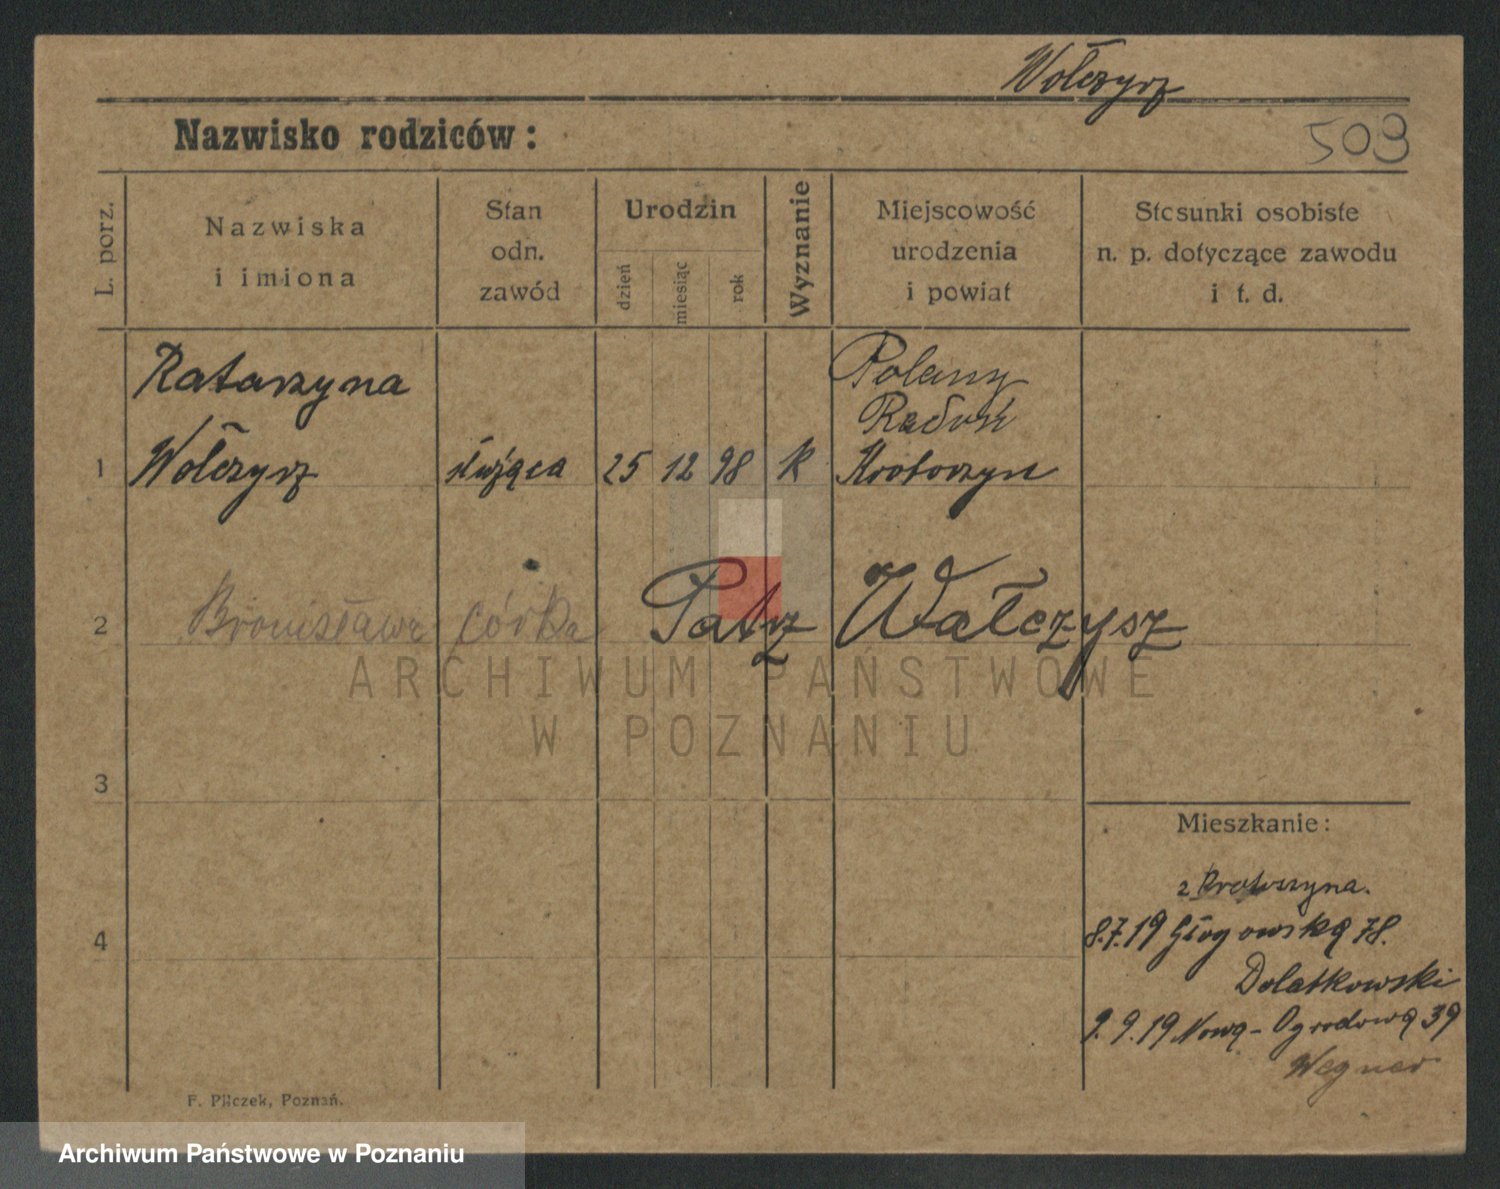 Wołczysz
Nazwisko rodziców:
509
L. porz.
Nazwiska
i imiona
Stan
odn.
zawód
Urodzin
dzień
miesiąc
rok
Wyznanie
Miejscowość
urodzenia
i powiat
Stosunki osobiste
n. p. dotyczące zawodu
i t. d.
Katarzyna
1 Wołczysz służąca 25 12 98 k Krotoszyn
2 Bronisława córka Patrz Wałczysz
ARCHIWUM PAŃSTWOWE
W POZNANIU
3
Mieszkanie:
z Krotoszyna.
8.7.19 Głogowską 78.
4
Dolatkowski
9.9.19 Nową-Ogrodową 39
Wegner
F. Pilczek, Poznań.
Archiwum Państwowe w Poznaniu